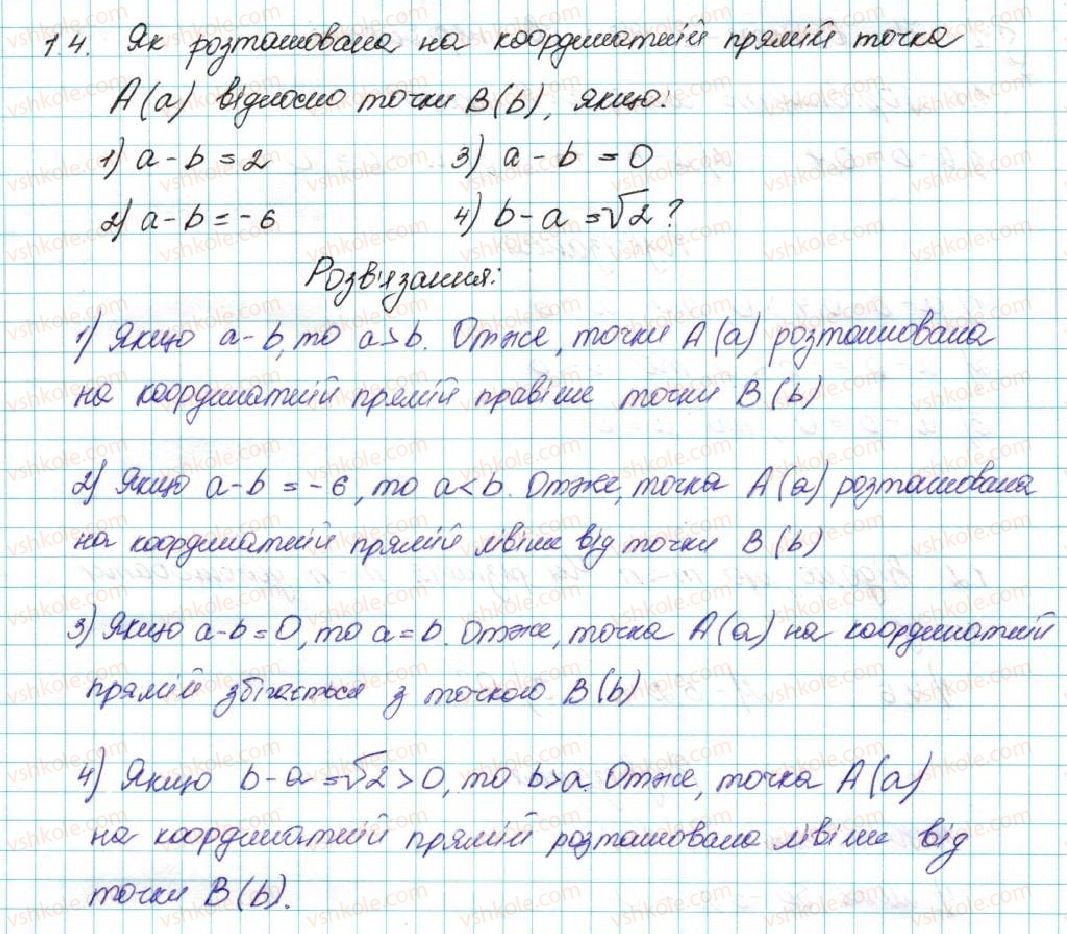 1.4. Як розташована на координатній прямій точка
A(a) відносно точки B(b), якщо:
1) a - b = 2 3) a - b = 0
2) a - b = -6 4) b - a = √2 ?
Розв'язання:
1) Якщо a - b, то a > b. Отже, точки A(a) розташована
на координатній прямій правіше точки B(b)
2) Якщо a - b = -6, то a < b. Отже, точка A(a) розташована
на координатній прямій лівіше від точки B(b)
3) Якщо a - b = 0, то a = b. Отже, точка A(a) на координатній
прямій збігається з точкою B(b)
4) Якщо b - a = √2 > 0, то b > a. Отже, точка A(a)
на координатній прямій розташована лівіше від
точки B(b).